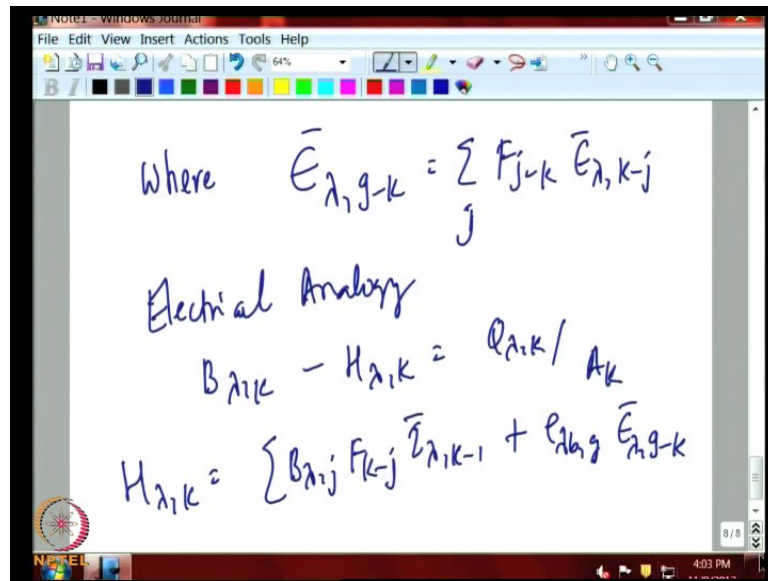 Note1 - Windows Journal
File Edit View Insert Actions Tools Help
64%
B I
where ε̄λ,g-k = Σj Fj-k ε̄λ,k-j
Electrical Analogy
Bλ,k - Hλ,k = Qλ,k / Ak
Hλ,k = Σ Bλ,j Fk-j τ̄λ,k-1 + eλb,g ε̄λ,g-k
8/8
NPTEL
4:03 PM